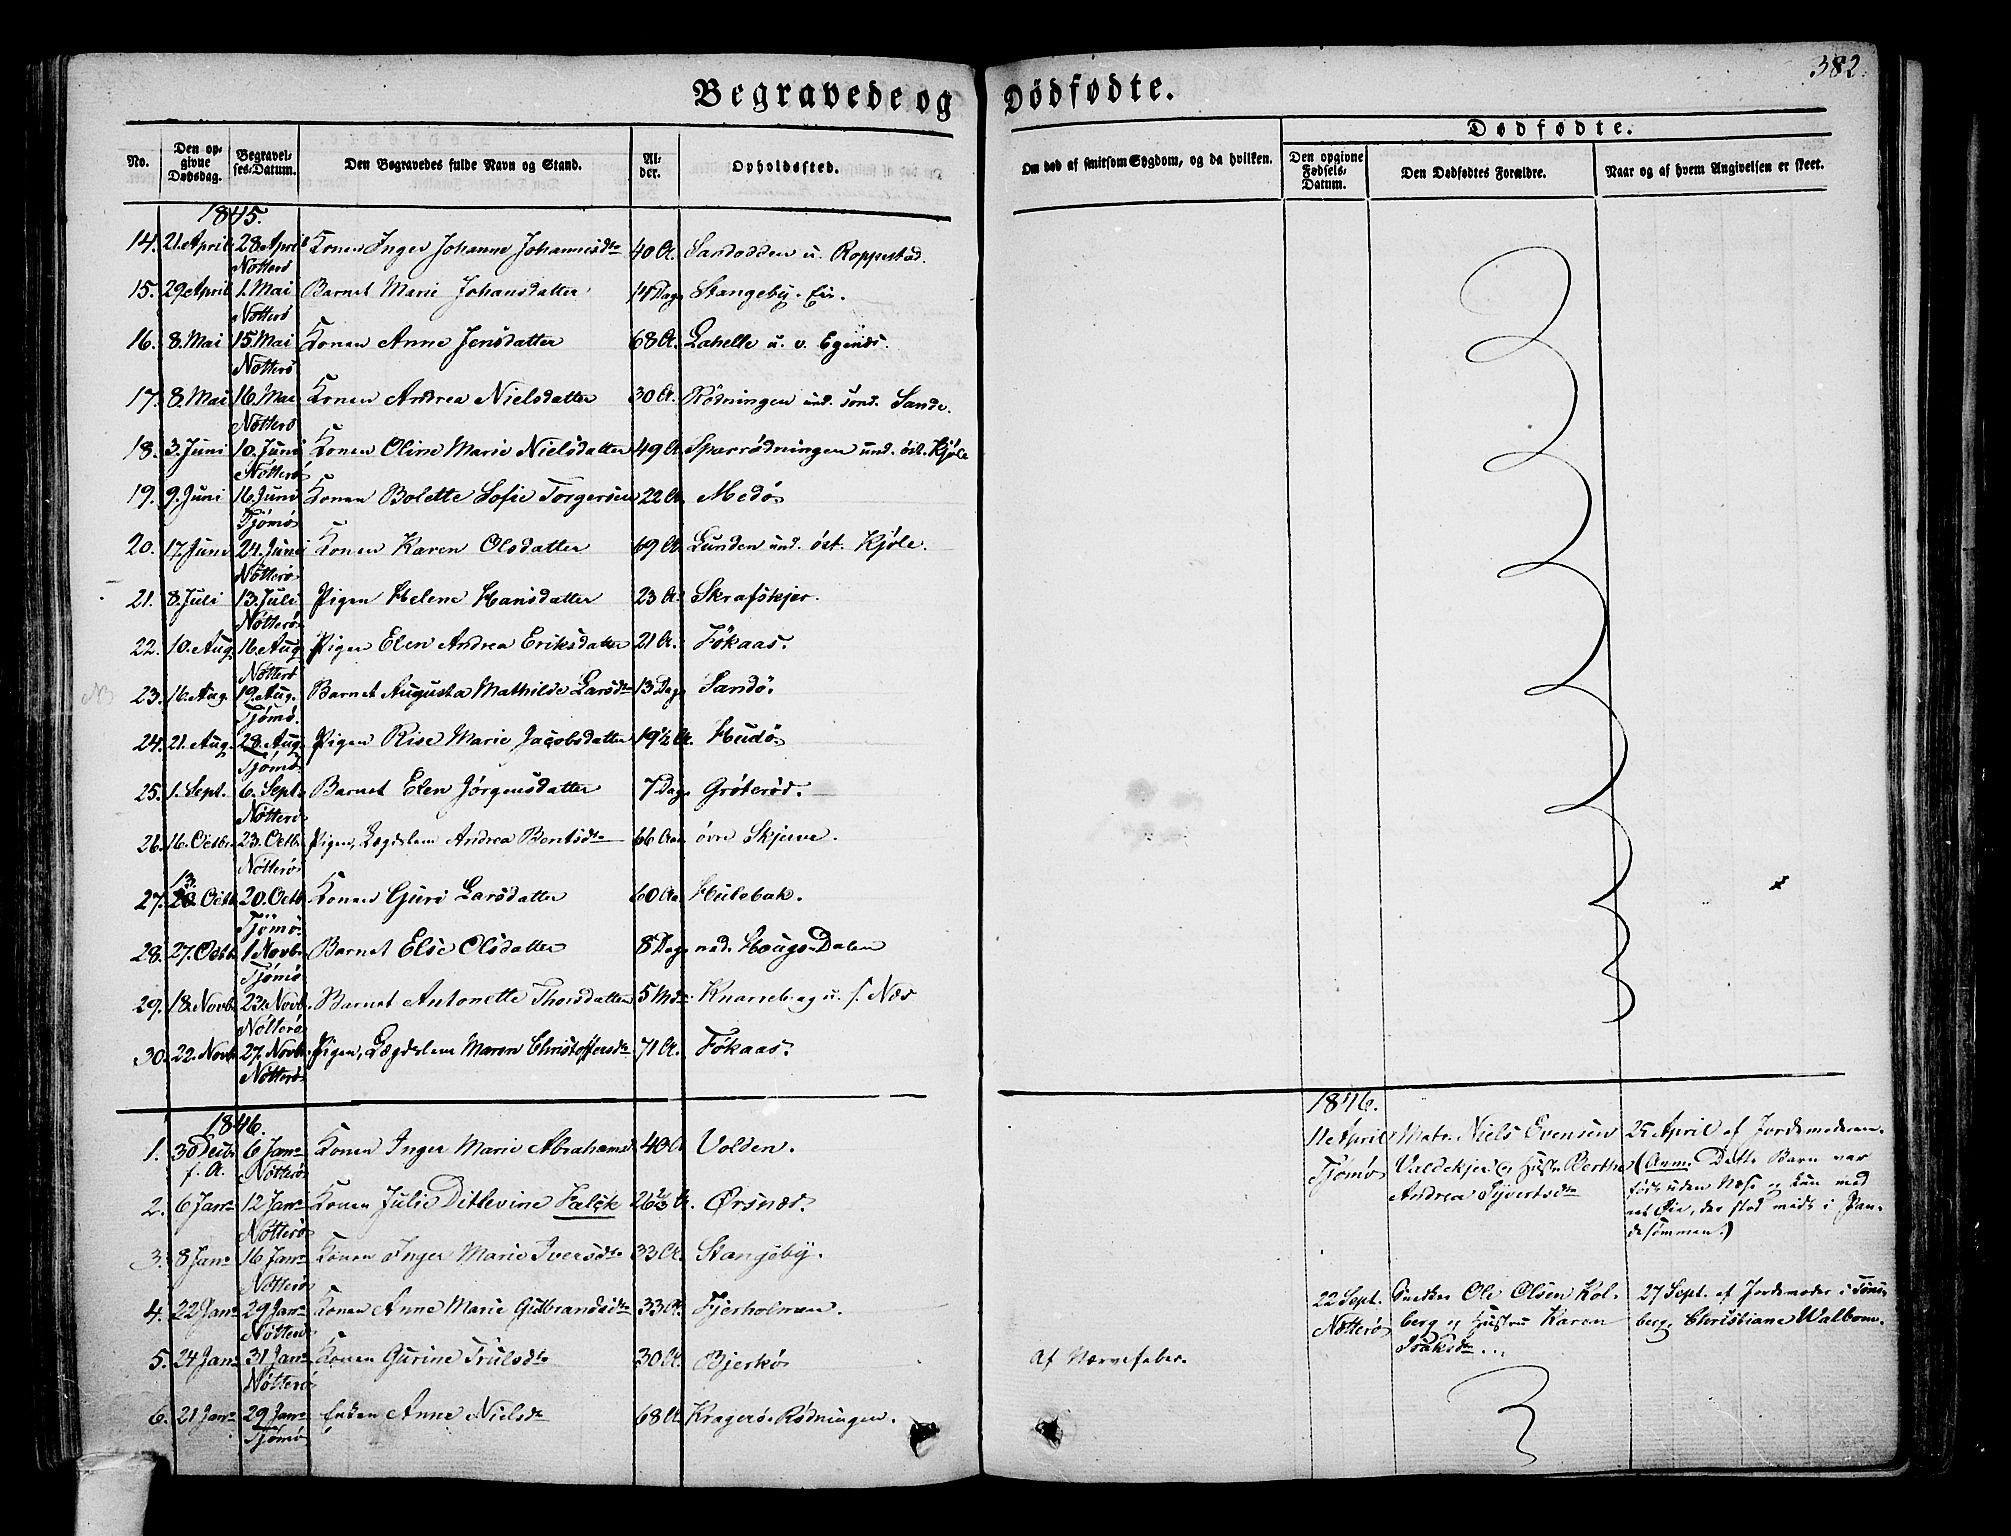 382.
Begravede og Dødfødte.
No. Den opgivne Dødsdag. Begravelses-Datum. Den Begravedes fulde Navn og Stand. Alder. Opholdssted. Om død af smitsom Sygdom, og da hvilken.
Dødfødte.
Den opgivne Fødsels-Datum. Den Dødfødtes Forældre. Naar og af hvem Angivelsen er skeet.
1845.
14. 21. April 28. April Konen Inger Johanne Johannesdtr 40 A. Sandodden u. Roppestad.
Nötterö
15. 29 April 1. Mai Barnet Marie Johansdatter 14 Dage Stangeby. Eie.
Nötterö
16. 8. Mai 15 Mai Konen Anne Jensdatter 68 A. Lahelle u. v. Egenæs.
Nötterö
17. 8. Mai 16. Mai Konen Andrea Nielsdatter 30 A. Rödningen und. sönd. Sande.
Nötterö
18. 3. Juni 10. Juni Konen Oline Marie Nielsdatter 49 A. Sparrödningen und. öst. Kjöle
Nötterö
19. 9. Juni 16. Juni Konen Bolette Sofie Torgersen 22 A. Medö
Tjömö
20. 17 Juni 24. Juni Konen Karen Olsdatter 69 A. Lunden und. öst. Kjöle.
Nötterö
21. 8. Juli 13. Juli Pigen Helene Hansdatter 23 A. Skrafskjer.
Nötterö
22. 10. Aug. 16. Aug. Pigen Elen Andrea Eriksdatter 21 A. Fökaas.
Nötterö
NB 23. 16. Aug. 19. Aug. Barnet Augusta Mathilde Larsdtr 13 Dage Sandö.
Tjömö.
24. 21. Aug. 28. Aug. Pigen Rise Marie Jacobsdatter 19½ A. Hudö
Tjömö
25. 1. Sept. 6. Sept. Barnet Elen Jörgensdatter 7 Dage Gröteröd.
Nötterö
26. 16. Octbr. 23. Octb. Pigen, Lægdslem Andrea Bentsdtr 66 Aar övre Skjerve.
Nötterö
13.
27. Octb. 20. Octb. Konen Guri Larsdatter 60 Aar Hulebak.
Tjömö.
28. 27. Octb. 1 Novb. Barnet Else Olsdatter 8 Dage ned. Hougs-Dalen
Tjömö
29. 18. Novb. 23. Novb. Barnet Antonette Thorsdatter 5 Mdr Knarreberg u. s. Næs
Nötterö
30. 22. Novb. 27. Novb. Pigen, Lægdslem Maren Christoffersdtr 71 A. Fökaas.
Nötterö
1846.
1. 30 Decbr 6 Janr Konen Inger Marie Abrahams 40 A Volden.
f. A. Nötterö
2. 6 Janr 12 Janr Konen Julie Ditlevine Falck 26 A. Örsnæs.
Nötterö
3. 8 Janr 16 Janr Konen Inger Marie Iversdtr 33 A. Stangeby.
Nötterö
4. 22 Janr 29 Janr Konen Anne Marie Gulbrandsdtr 33 A. Fjerholmen.
Nötterö
5. 24 Janr 31 Janr Konen Gurine Trulsdtr 30 A. Bjerkö Af Nervefeber.
Nötterö
6. 21 Janr 29 Janr Enken Anne Nielsdtr 68 A. Kragerö-Rödningen.
Tjömö
1846.
11te April Matr. Niels Evensen 25 April af Jordemoderen.
Tjömö Valdekjer og Hustr Berthe (Anm: Dette Barn var
Andrea Syvertsdtr födt uden Næse og kun med
et Öie, der stod midt i Pan-
desömmen.)
22 Sept. Snedker Ole Olsen Kol- 27 Sept. af Jordemoder i Töns-
Nötterö berg og Hustru Karen berg, Christiane Walbom.
Isaksdtr